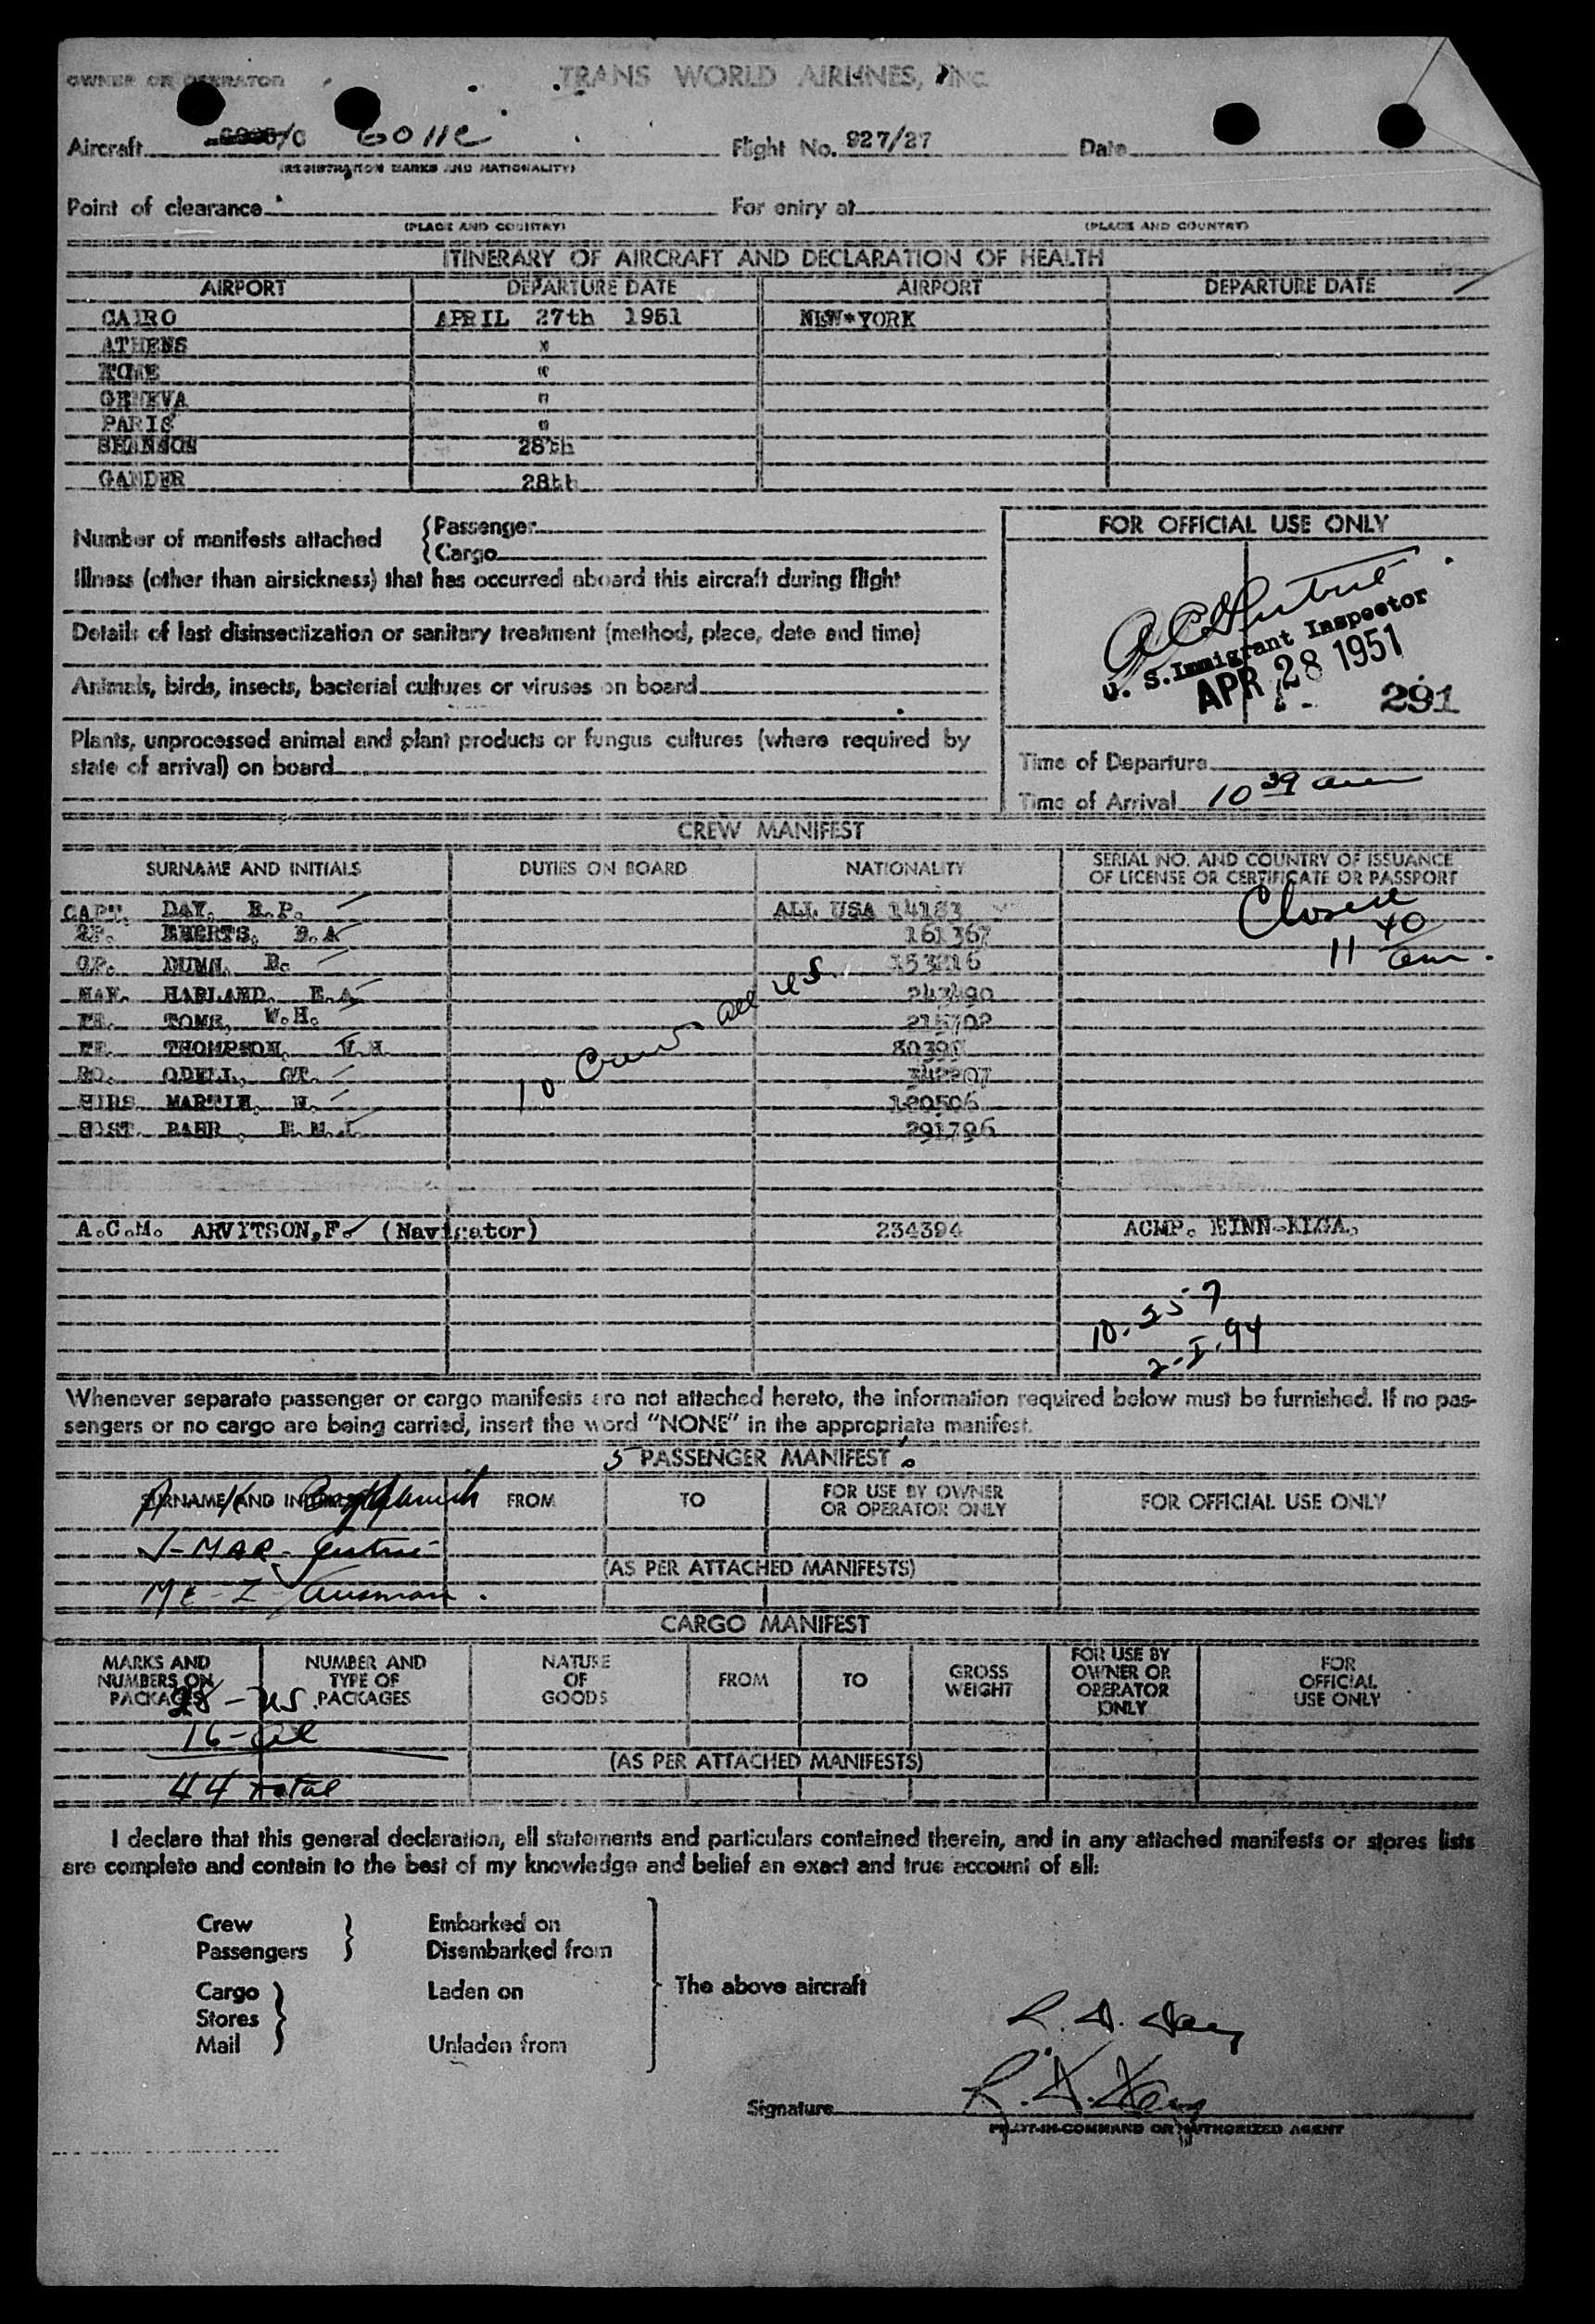 OWNER OR OPERATOR TRANS WORLD AIRLINES, INC.
Aircraft /C 6011C Flight No. 927/27 Date
(REGISTRATION MARKS AND NATIONALITY)
Point of clearance For entry at
(PLACE AND COUNTRY) (PLACE AND COUNTRY)
ITINERARY OF AIRCRAFT AND DECLARATION OF HEALTH
AIRPORT DEPARTURE DATE AIRPORT DEPARTURE DATE
CAIRO APRIL 27th 1951 NEW*YORK
ATHENS "
ROME "
GENEVA "
PARIS "
SHANNON 28th
GANDER 28th
Number of manifests attached {Passenger
{Cargo
FOR OFFICIAL USE ONLY
Illness (other than airsickness) that has occurred aboard this aircraft during flight
Details of last disinsectization or sanitary treatment (method, place, date and time)
U. S. Immigrant Inspector
APR 28 1951
291
Animals, birds, insects, bacterial cultures or viruses on board
Plants, unprocessed animal and plant products or fungus cultures (where required by
state of arrival) on board
Time of Departure
Time of Arrival 10 39 am
CREW MANIFEST
SURNAME AND INITIALS DUTIES ON BOARD NATIONALITY SERIAL NO. AND COUNTRY OF ISSUANCE
OF LICENSE OR CERTIFICATE OR PASSPORT
CAPT. DAY. R.P. ALL USA 14183 Closed
2P. EBERTS, D.A 161367 11 40 am.
OP. DUMN. B. 153216
NAV. HARLAND. E.A 243490
FE. TOMS, W.H. 215702
FE. THOMPSON, 8039
RO. ODELL, GT. 342207
HTRS MARTIN, N. 120506
HOST. BAER, E.M.I. 291796
10 Crew all US.
A.C.M. ARVITSON,F. (Navigator) 234394 ACMP.
10.257
2-I.94
Whenever separate passenger or cargo manifests are not attached hereto, the information required below must be furnished. If no pas-
sengers or no cargo are being carried, insert the word "NONE" in the appropriate manifest.
5 PASSENGER MANIFEST
SURNAME AND INITIALS FROM TO FOR USE BY OWNER
OR OPERATOR ONLY FOR OFFICIAL USE ONLY
J-MAR-
(AS PER ATTACHED MANIFESTS)
CARGO MANIFEST
MARKS AND
NUMBERS ON
PACKAGES NUMBER AND
TYPE OF
PACKAGES NATURE
OF
GOODS FROM TO GROSS
WEIGHT FOR USE BY
OWNER OR
OPERATOR
ONLY FOR
OFFICIAL
USE ONLY
28-US.
16-al
(AS PER ATTACHED MANIFESTS)
44 total
I declare that this general declaration, all statements and particulars contained therein, and in any attached manifests or stores lists
are complete and contain to the best of my knowledge and belief an exact and true account of all:
Crew } Embarked on
Passengers } Disembarked from
Cargo } Laden on The above aircraft
Stores
Mail Unladen from
R. D. Day
Signature R. D. Day
PILOT-IN-COMMAND OR AUTHORIZED AGENT